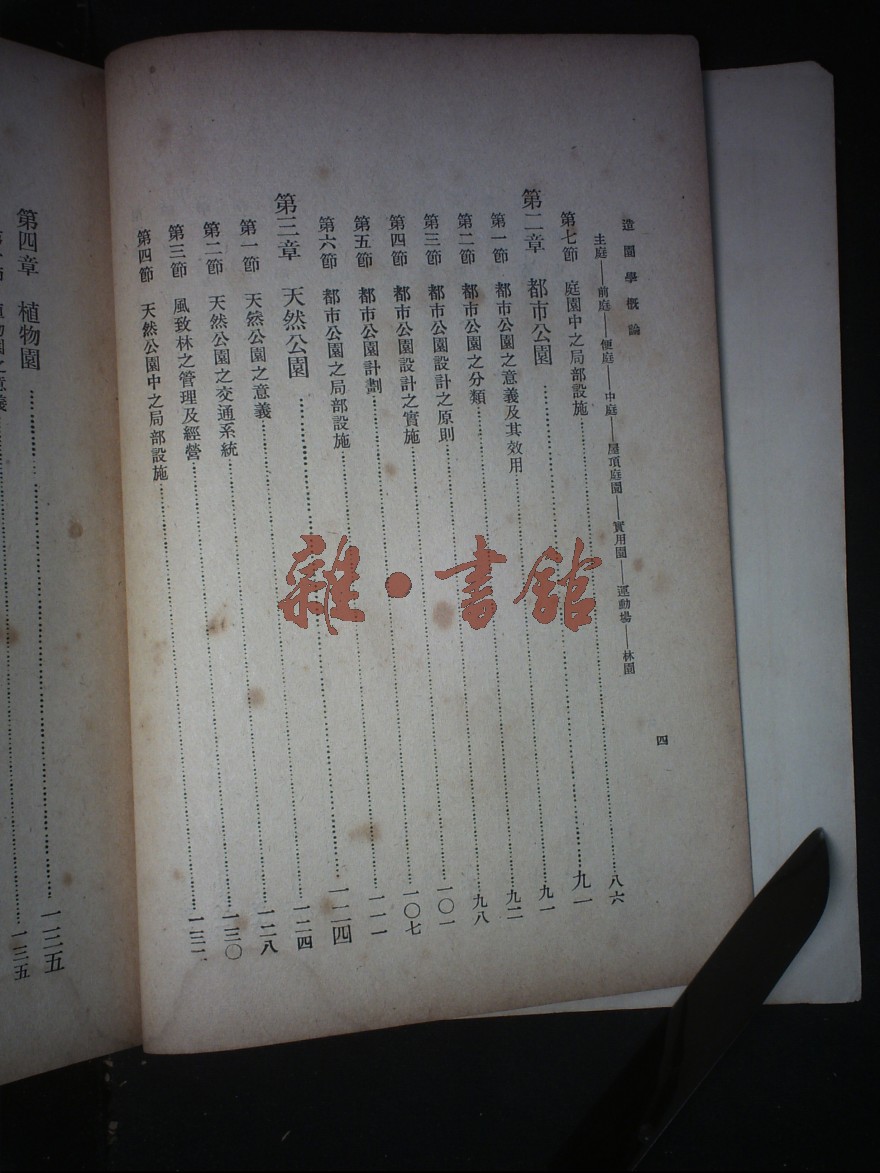 造園學概論
四
主庭——前庭——便庭——中庭——屋頂庭園——實用園——運動場——林園
第七節 庭園中之局部設施……八六
第二章 都市公園……九一
第一節 都市公園之意義及其效用……九一
第二節 都市公園之分類……九二
第三節 都市公園設計之原則……九八
第四節 都市公園設計之實施……一〇一
第五節 都市公園計劃……一〇七
第六節 都市公園之局部設施……一一一
第三章 天然公園……一二四
第一節 天然公園之意義……一二四
第二節 天然公園之交通系統……一二八
第三節 風致林之管理及經營……一三〇
第四節 天然公園中之局部設施……一三二
第四章 植物園……一三五
物園之意義……一三五
雜·書館